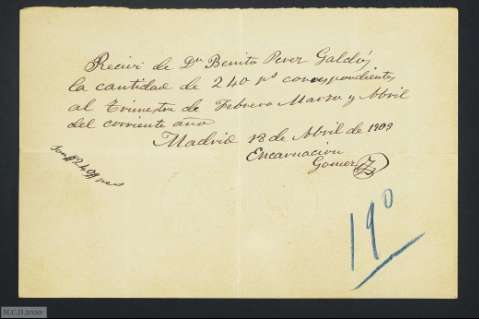 Recivi de Dn Benito Perez Galdós
la cantidad de 240 ps correspondientes
al trimestre de Febrero Marzo y Abril
del corriente año
Madrid 18 de Abril de 1909
Encarnacion
Gomez
19º